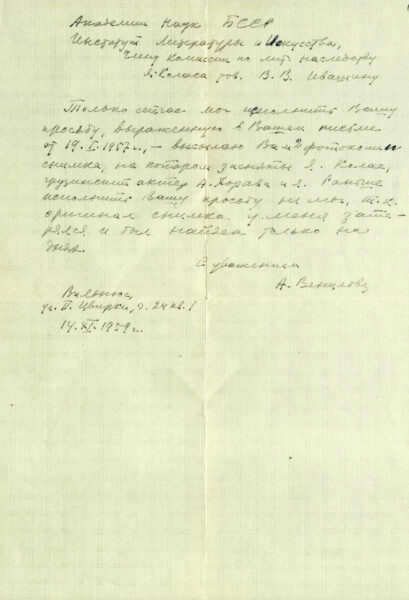 Академии Наук БССР
Институт Литературы и Искусства,
Члену комиссии по лит. наследству
Я. Коласа тов. В. В. Ивашину
Только сейчас мог исполнить Вашу
просьбу, выраженную в Вашем письме
от 19. 1957 г., – высылаю Вам 2 фотокопии
снимка, на котором засняты Я. Колас,
грузинский актер А. Хорава и я. Раньше
исполнить Вашу просьбу не мог, т.к.
оригинал снимка у меня зате-
рялся и был найден только на
днях.
С уважением
А. Венцлова
Вильнюс,
ул. П. Цвирки, д. 24 кв. 1
14.XI.1959 г.